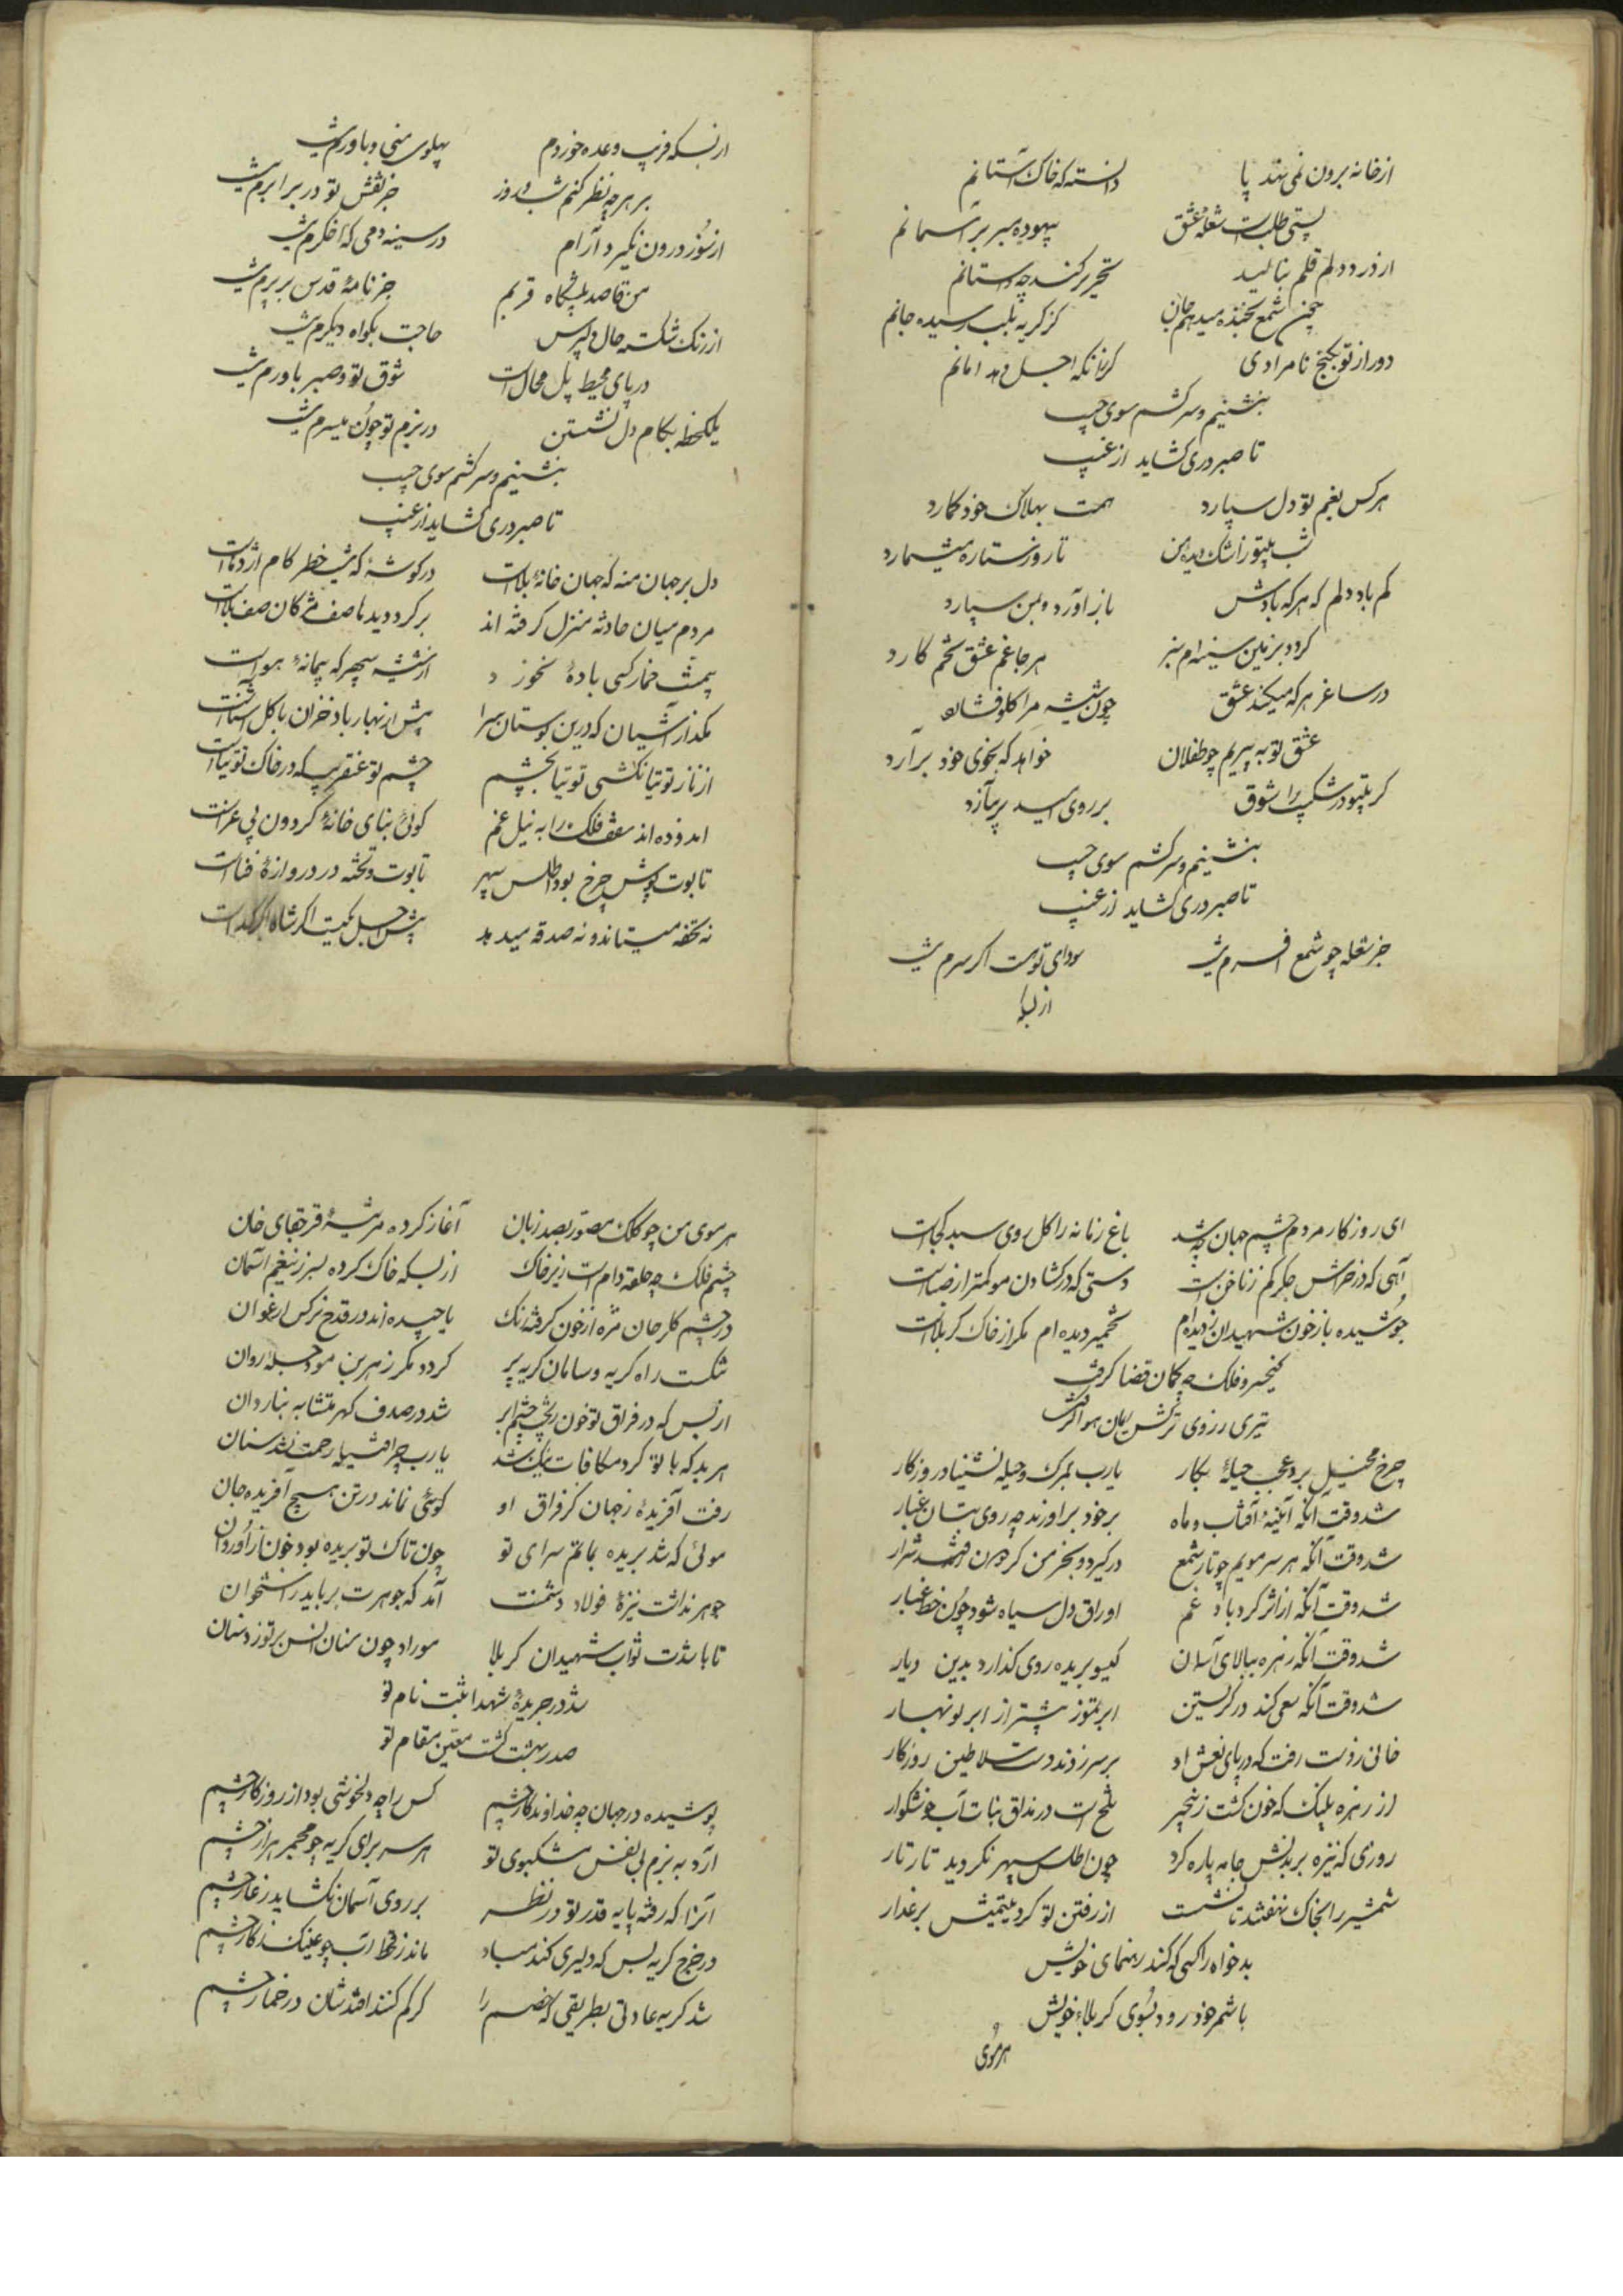 از خانه برون نمی نهند پا دانسته که خاک آستانم
پستی طلب است شعله عشق بیهوده مبر بر آسمانم
از درد دلم قلم بنالید تحریر کند چه داستانم
چون شمع بخنده میدهم جان کز گریه بلب رسیده جانم
دور از تو بکنج نامرادی گر زانکه اجل دهد امانم
بنشینم و سر کشم سوی جیب
تا صبر دری کشاید از غیب
هر کس بغم تو دل سپارد همت بهلاک خود کمارد
شب بیتو ز اشک دیده من تا روز ستاره میشمارد
کم باد دلم که هر که بادش باز آورد و بمن سپارد
گردد بزمین سینه‌ام سبز هر جا غم عشق تخم کارد
در ساغر هر که میکند عشق چون شیشه مرا گلو فشارد
عشق تو به پیریم چو طفلان خواهد که بخوی خود برآرد
گر بیتو در شکیب را شوق بر روی امید بر نیارد
بنشینم و سر کشم سوی جیب
تا صبر دری کشاید از غیب
جز شعله چو شمع افسرم نیست سودای تو هست اگر سرم نیست
از بسکه
از بسکه فریب وعده خوردم پهلوی منی و باورم نیست
بر هر چه نظر کنم شب و روز جز نقش تو در برابرم نیست
از سوز درون نگیرد آرام در سینه دمی که اخگرم نیست
من قاصد پیشگاه قربم جز نامهٔ قدس بر پرم نیست
از رنگ شکسته حال دل پرس حاجت بگواه دیگرم نیست
در پای محیط پل محال است شوق تو و صبر باورم نیست
یکلحظه بکام دل نشستن در بزم تو چون میسرم نیست
بنشینم و سر کشم سوی جیب
تا صبر دری کشاید از غیب
دل بر جهان منه که جهان خانهٔ بلاست در گوشهٔ که نیست خطر کام اژدهاست
مردم میان حادثه منزل گرفته اند بر گرد دیدها صف مژگان صف بلاست
بیمنت خمار کسی بادهٔ نخورد از شیشه سپهر که پیمانهٔ هواست
مگذار آشیان که درین بوستان سرا پیش از بهار باد خزان با گل آشناست
از ناز توتیا نکشی توتیا بچشم چشم تو عنقریب که در خاک توتیاست
اندوده اند سقف فلک را به نیل غم گوئی بنای خانهٔ گردون پی عزاست
تابوت پوش چرخ بود اطلس سپهر تابوت و تخته در دروازهٔ فناست
نه تحفه میستاند و نه صدقه میدهد پیش اجل یکیست اگر شاه اگر گداست
ای روزگار مردم چشم جهان چه شد باغ زمانه را گل روی سبد کجاست
آهی که در خراش جگر کم ز ناخن است دستی که در گشادن مو کمتر از صباست
جوشیده باز خون شهیدان ندیده‌ام تخمیر دیده ام مگر از خاک کربلاست
کیخسرو فلک چه کمان قضا گرفت
تیری ز روی ترکش ایمان هوا گرفت
چرخ محیل برد عجب حیلهٔ بکار یارب بمرگ حیله نشیناد روزگار
شد وقت آنکه آئینهٔ آفتاب و ماه بر خود برآورند چه روی بتان غبار
شد وقت آنکه هر سر مویم چو تار شمع در گیرد و بخرمن گردون فتد شرار
شد وقت آنکه از اثر گردباد غم اوراق دل سیاه شود چون خط غبار
شد وقت آنکه زهره ببالای آسمان گیسو بریده روی گذارد بدین دیار
شد وقت آنکه سعی کند در گریستن ابر تموز بیشتر از ابر نوبهار
خانی ز دست رفت که در پای نعش او بر سر زدند دست سلاطین روزگار
از زهره پلنگ که خون گشت ز نخچیر تلخ است در مذاق نبات آب خوشگوار
روزی که نیزه بر بدنش جامه پاره کرد چون اطلس سپهر نگردید تار تار
شمشیر را بخاک نهفتند تا نشست از رفتن تو گرد یتیمیش بر عذار
بدخواه را کسی که کند رهنمای خویش
با شمر خود رود بسوی کربلای خویش
هر موی
هر موی من چو کلک مصور بصد زبان آغاز کرده مرثیهٔ قرچقای خان
چشم فلک چه حلقه دام است زیر خاک از بسکه خاک کرده بسر زین غم آسمان
در چشم گلرخان مژه از خون گرفته رنگ یا چیده اند در قدح نرگس ارغوان
تنگست راه گریه و سامان گریه پر گردد مگر ز هر بن مو دجله روان
از بس که در فراق تو خون ریخت چشم ابر شد در صدف گهر متشابه بناردان
هر بد که با تو کرد مکافات آن نشد یارب چرا فتیله رحمت نشد سنان
رفت آفریدهٔ ز جهان کز فراق او گوئی نماند در تن هیچ آفریده جان
موئی که شد بریده بماتم سرای تو چون تاک نو بریده بود خون ازو روان
جوهر نداشت نیزهٔ فولاد دشمنت آمد که جوهرت برباید ز استخوان
تا باشدت ثواب شهیدان کربلا موراد چون سنان انس بر تو زد سنان
شد در جریدهٔ شهدا ثبت نام تو
صدر بهشت گشت معین مقام تو
پوشیده در جهان چه خداوندگار چشم کس را چه دلخوشی بود از روزگار چشم
آرد به بزم بی نفس مشکبوی تو هر سر برای گریه چو مجمر هزار چشم
آنرا که رفته پایه قدر تو در نظر بر روی آسمان نگشاید ز عار چشم
در خرج گریه بس که دلیری کند مباد ماند ز قحط آب چو عینک ز کار چشم
شد گریه عادتی بطریقی که خصم را گر گم کنند افتدشان در خمار چشم